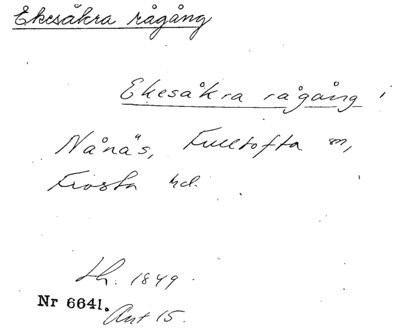 Ekesåkra rågång
Ekesåkra rågång i
Nånäs, Fulltofta sn,
Frosta hd.
Lh. 1849.
Nr 6641.
Ant 15.